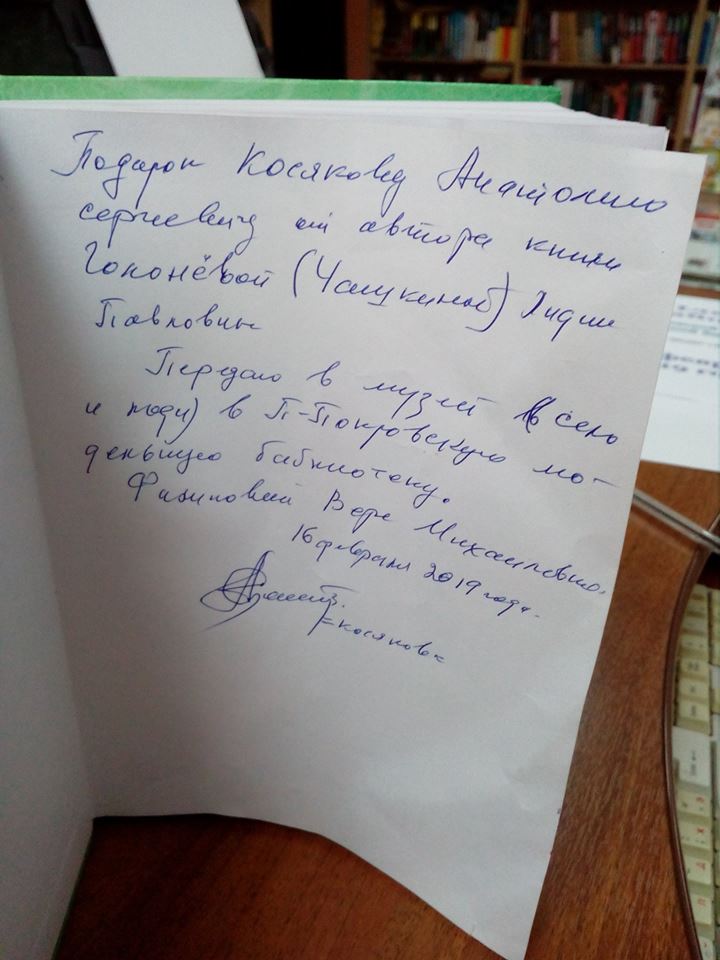 Подарок Косякову Анатолию
сергеевичу от автора книги
Гоконёвой (Чашкиной) Лидии
Павловны
Передаю в музей (село
и люди) в П-Покровскую мо-
дельную библиотеку.
Филиповой Вере Михаиловне.
16 февраля 2019 года.
=Косяков=